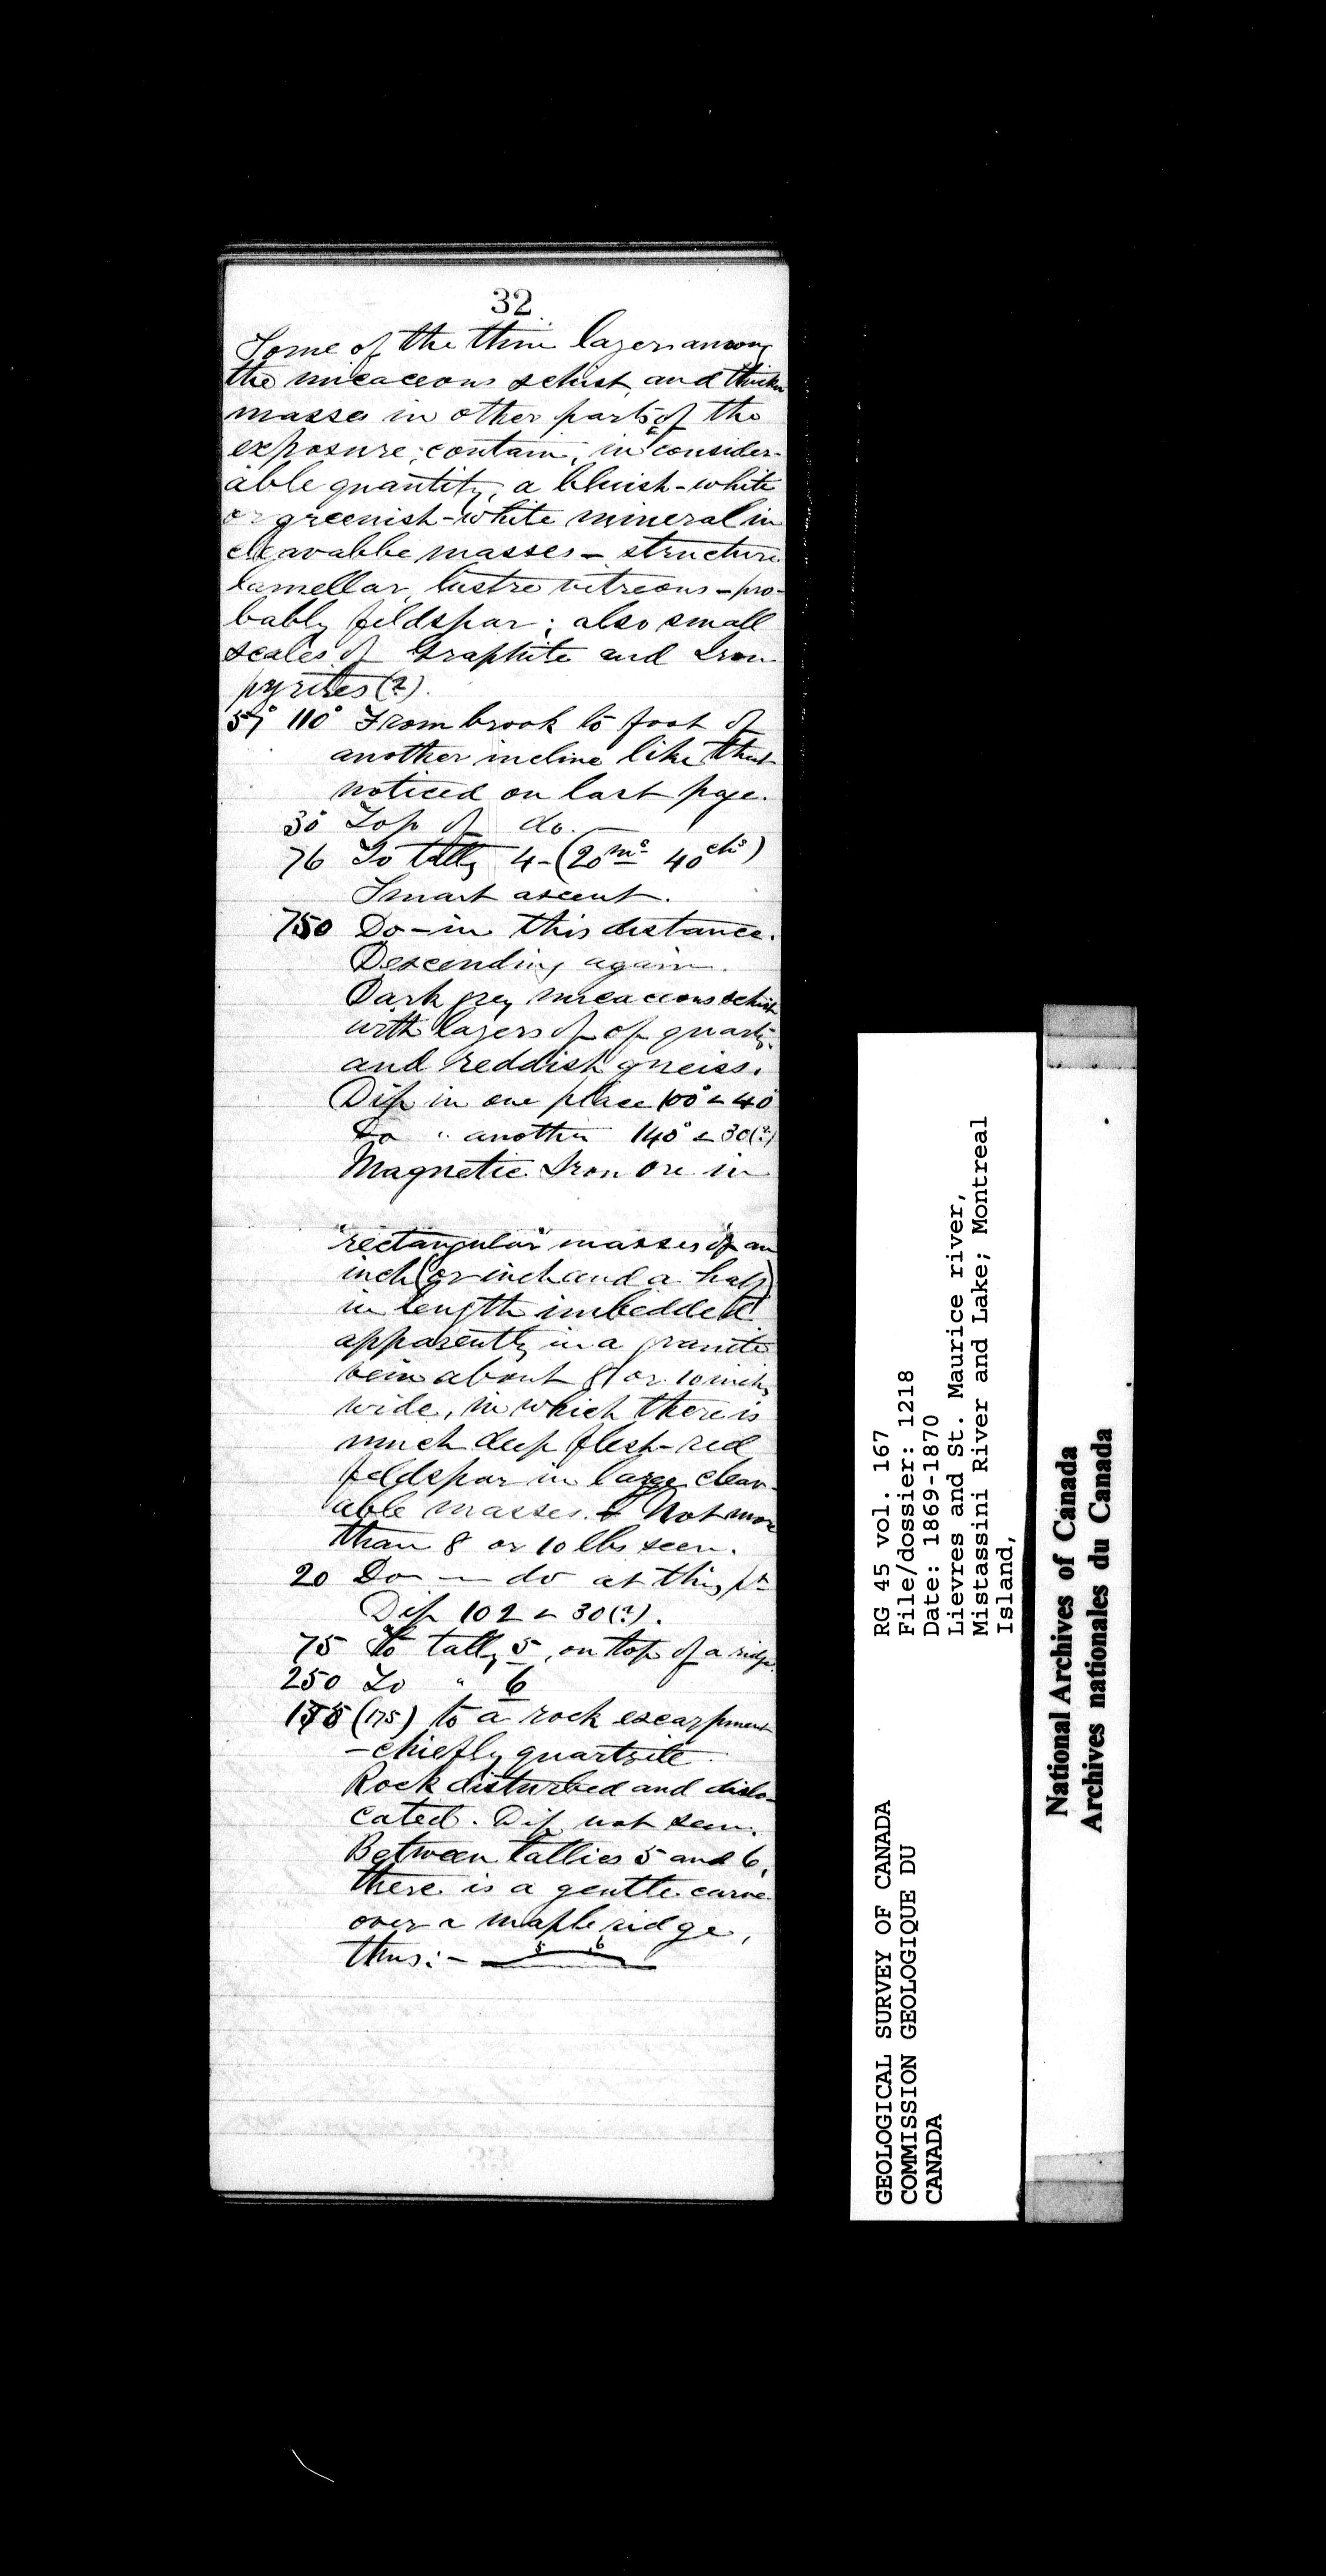 32
Some of the thin layers among
the micaceous schist, and thicker
masses in other parts of the
exposure, contain, in consider-
able quantity, a bluish-white
or greenish-white mineral in
cleavable masses - structure
lamellar, lustre vitreous - pro-
bably feldspar; also small
scales of Graphite and Iron
pyrites (?).
110° From brook to foot of
another incline like that
noticed on last page.
30 Top of do.
76 To tally 4 - (20 ms 40 chs)
Smart ascent.
750 Do - in this distance.
Descending again.
Dark grey micaceous schist
with layers of of quartz
and reddish gneiss.
Dip in one place 100° < 40°
Do " another 140° < 30(?)
Magnetic Iron Ore in
"rectangular" masses of an
inch (or inch and a half)
in length imbedded
apparently in a granite
vein about 8 or 10 inches
wide, in which there is
much deep flesh-red
feldspar in large cleav-
able masses. Not more
than 8 or 10 lbs seen.
20 Do — do at this pt
Dip 102 < 30(?).
75 To tally 5, on top of a ridge
250 To " 6
(175) to a rock escarpment
- chiefly quartzite.
Rock disturbed and dislo-
cated. Dip not seen.
Between tallies 5 and 6,
there is a gentle curve
over a maple ridge,
thus:-
5 6
RG 45 vol. 167
File/dossier: 1218
Date: 1869-1870
Lievres and St. Maurice river,
Mistassini River and Lake; Montreal
Island,
GEOLOGICAL SURVEY OF CANADA
COMMISSION GEOLOGIQUE DU
CANADA
National Archives of Canada
Archives nationales du Canada